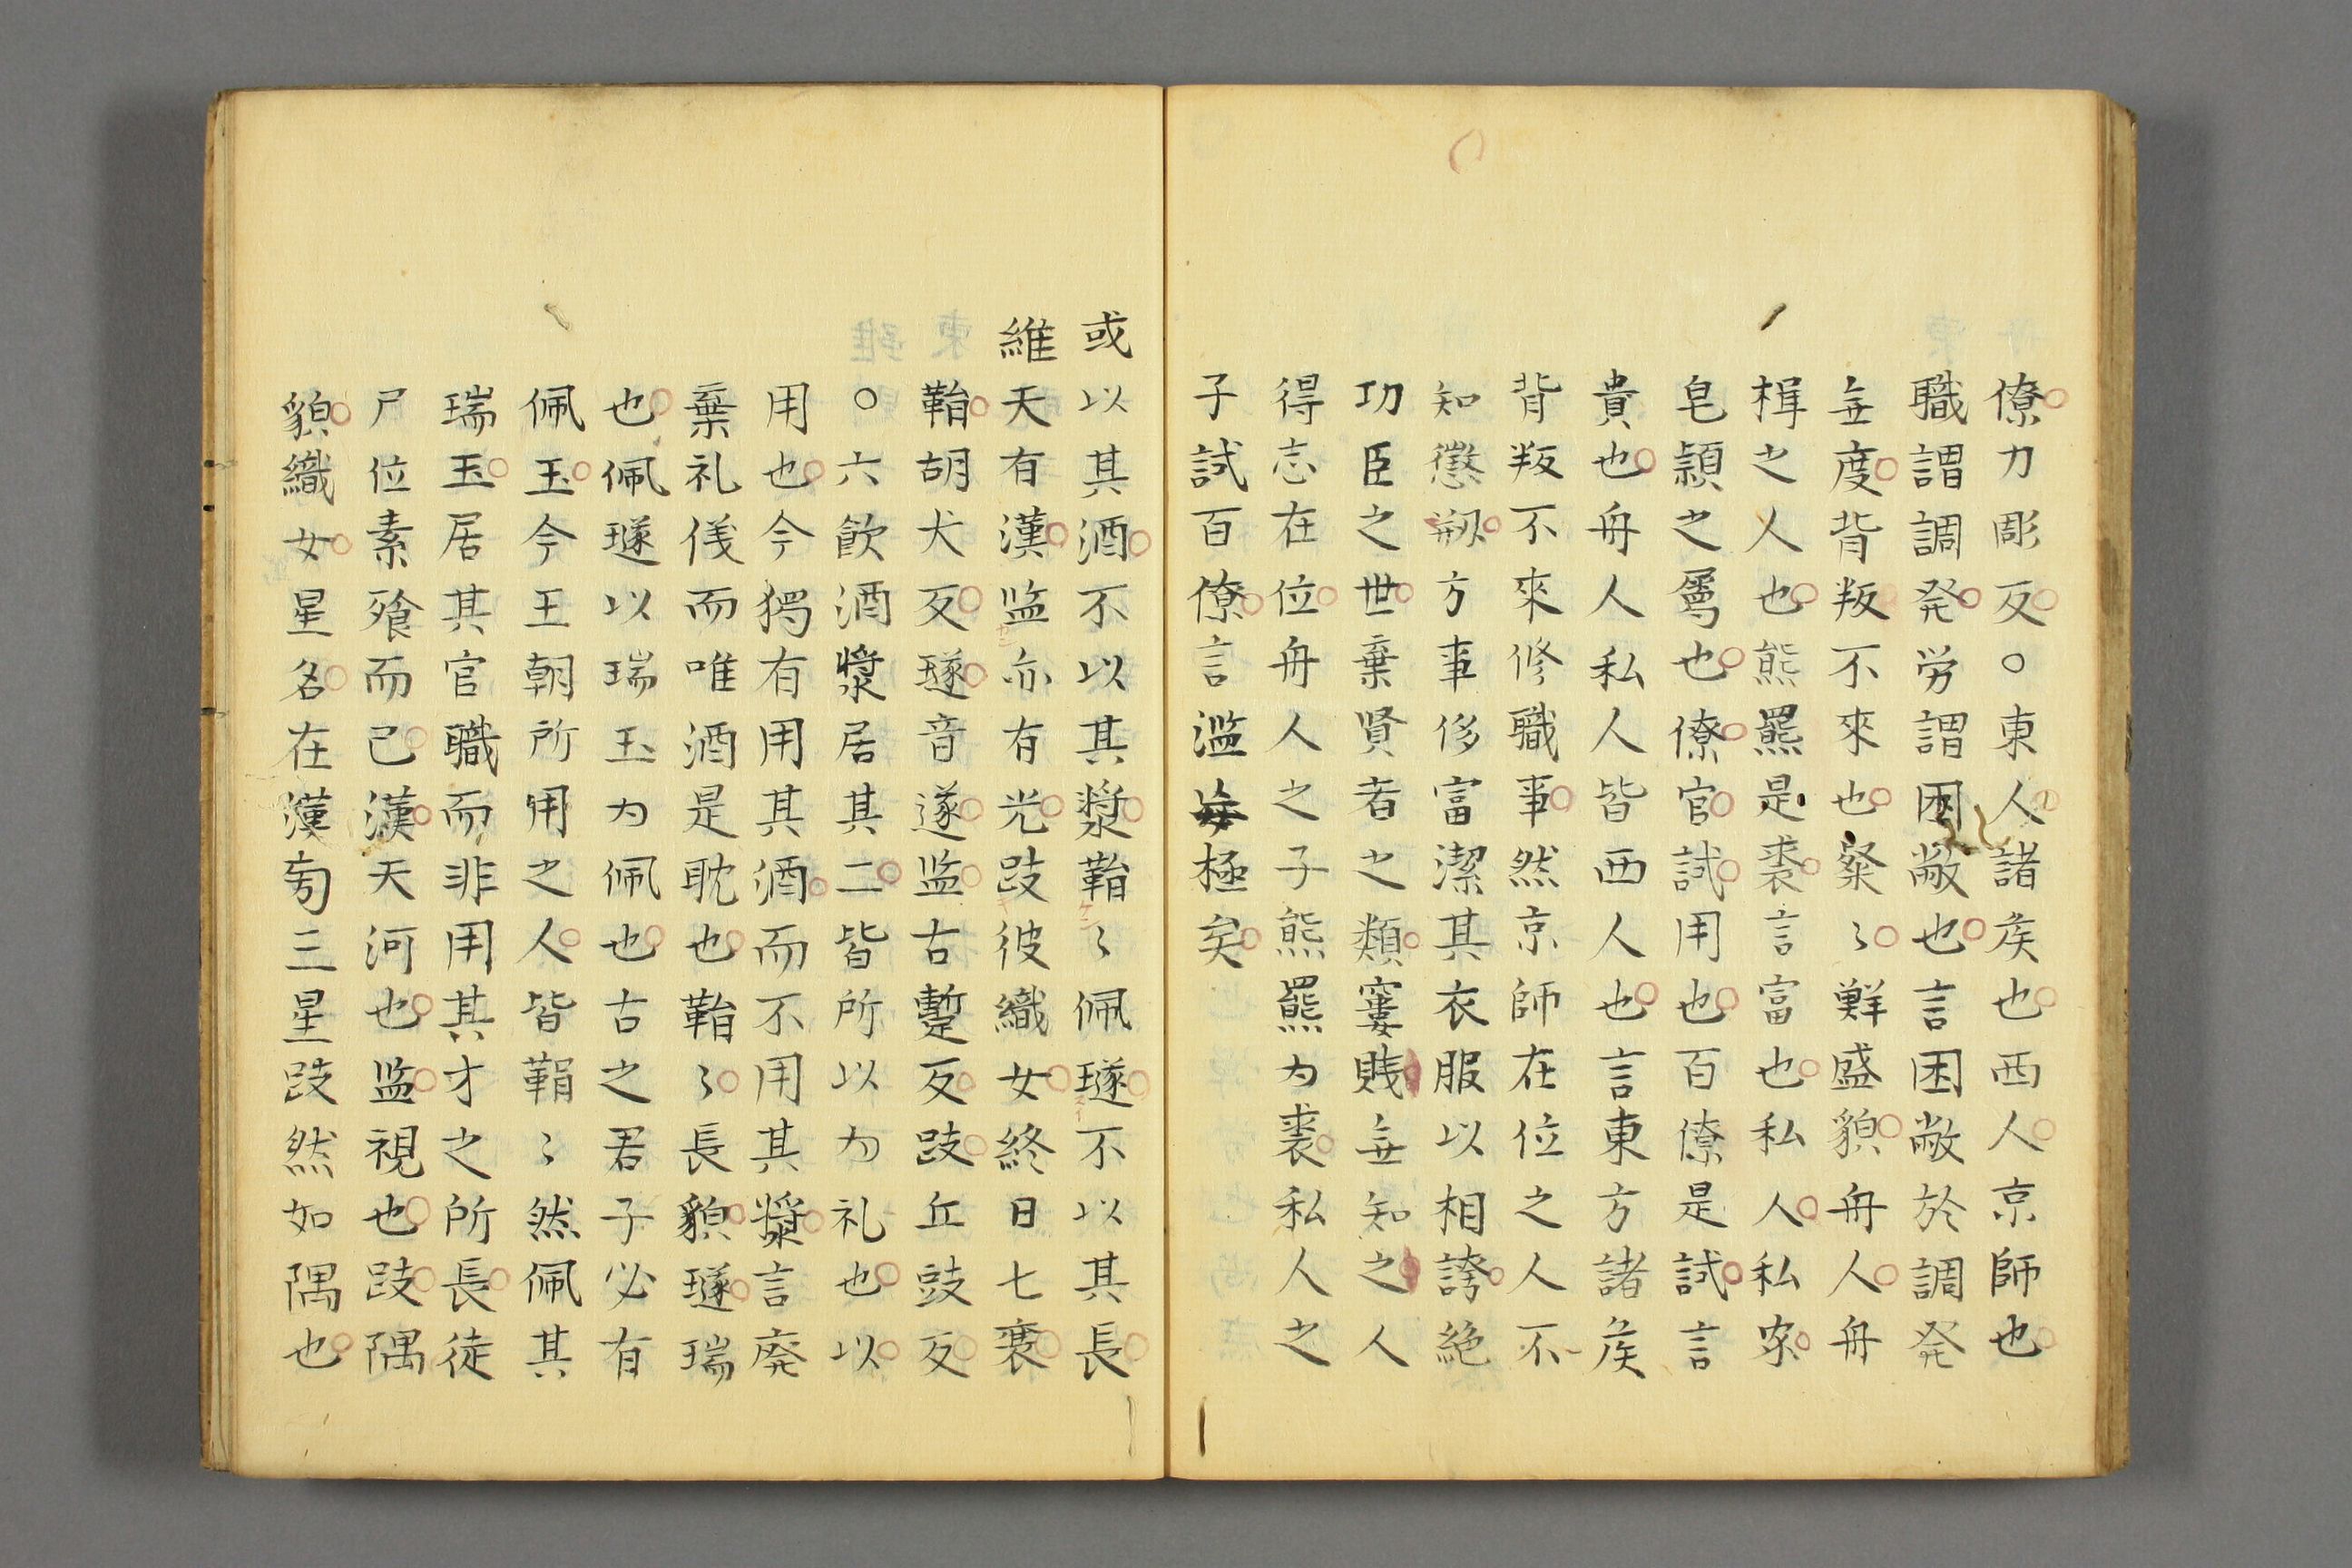 僚力彫反○東人諸侯也西人京師也
職謂調発労謂困敝也言困敝於調発
無度背叛不來也粲〻鮮盛貌舟人舟
楫之人也熊羆是裘言富也私人私家
皂隷之屬也僚官試用也百僚是試言
貴也舟人私人皆西人也言東方諸侯
背叛不來修職事然京師在位之人不
知懲剏方事侈富潔其衣服以相誇絶
功臣之世棄賢者之類窶賎無知之人
得志在位舟人之子熊羆为裘私人之
子試百僚言濫極矣
或以其酒不以其漿鞙〻佩璲不以其長
維天有漢监亦有光跂彼織女終日七襄
鞙胡犬反璲音遂监古蹔反跂丘豉反
○六飲酒漿居其二皆所以为礼也以
用也今獨有用其酒而不用其漿言廃
棄礼儀而唯酒是耽也鞙〻長貌璲瑞
也佩璲以瑞玉为佩也古之君子必有
佩玉今王朝所用之人皆鞙〻然佩其
瑞玉居其官職而非用其才之所長徒
尸位素飱而已漢天河也监視也跂隅
貌織女星名在漢㫄三星跂然如隅也